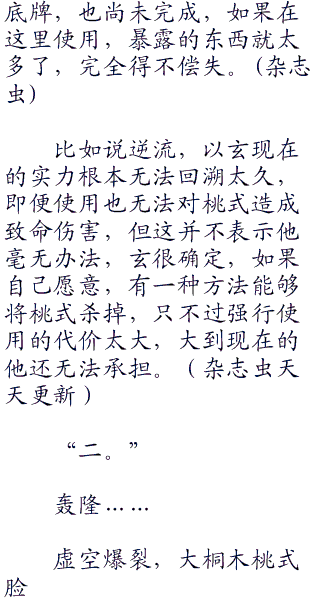 底牌，也尚未完成，如果在
这里使用，暴露的东西就太
多了，完全得不偿失。(杂志
虫)
比如说逆流，以玄现在
的实力根本无法回溯太久，
即便使用也无法对桃式造成
致命伤害，但这并不表示他
毫无办法，玄很确定，如果
自己愿意，有一种方法能够
将桃式杀掉，只不过强行使
用的代价太大，大到现在的
他还无法承担。（杂志虫天
天更新）
“二。”
轰隆……
虚空爆裂，大桐木桃式
脸